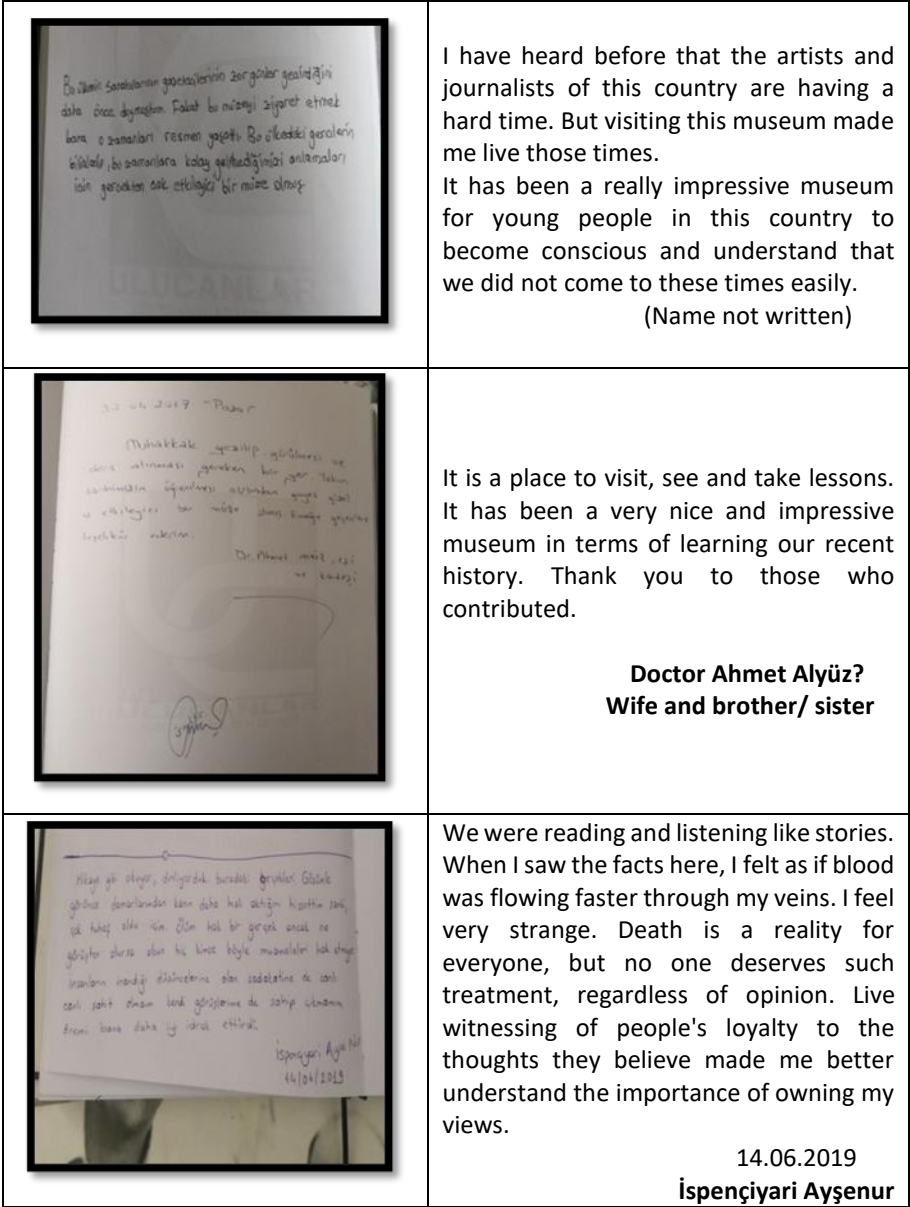 Bu ülkenin sanatçılarının gazetecilerinin zor günler geçirdiğini
daha önce duymuştum. Fakat bu müzeyi ziyaret etmek
bana o zamanları resmen yaşattı. Bu ülkedeki gençlerin
bu zamanlara kolay gelmediğimizi anlamaları
için gerçekten çok etkileyici bir müze olmuş
ULUCANLAR
I have heard before that the artists and
journalists of this country are having a
hard time. But visiting this museum made
me live those times.
It has been a really impressive museum
for young people in this country to
become conscious and understand that
we did not come to these times easily.
(Name not written)
2017 - Pazar
Muhakkak gezilip görülmesi ve
ders alınması gereken bir yer. Yakın
öğrenilmesi açısından gayet güzel
ve etkileyici bir müze olmuş. Emeği geçenlere
teşekkür ederim.
Dr. Ahmet
ULUCANLAR
It is a place to visit, see and take lessons.
It has been a very nice and impressive
museum in terms of learning our recent
history. Thank you to those who
contributed.
Doctor Ahmet Alyüz?
Wife and brother/ sister
Hikaye gibi okuyor, dinliyorduk buradaki gerçekleri.
görünce damarlarımdan kanın daha hızlı aktığını hissettim sanki,
çok tuhaf oldu içim. Ölüm hak bir gerçek ancak ne
görüşten olursa olsun hiç kimse böyle muameleleri hak etmiyor
İnsanların inandığı düşüncelerine olan sadakatine de canlı
canlı şahit olmam kendi görüşlerime de sahip çıkmanın
önemi bana daha iyi idrak ettirdi.
İspençiyari
14/06/2019
We were reading and listening like stories.
When I saw the facts here, I felt as if blood
was flowing faster through my veins. I feel
very strange. Death is a reality for
everyone, but no one deserves such
treatment, regardless of opinion. Live
witnessing of people's loyalty to the
thoughts they believe made me better
understand the importance of owning my
views.
14.06.2019
İspençiyari Ayşenur